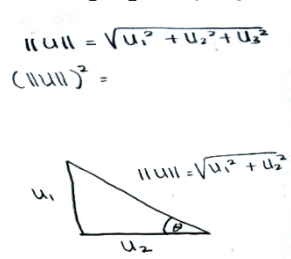 ||U|| = √U₁² + U₂² + U₃²
(||U||)² =
||U|| = √U₁² + U₂²
U₁
θ
U₂